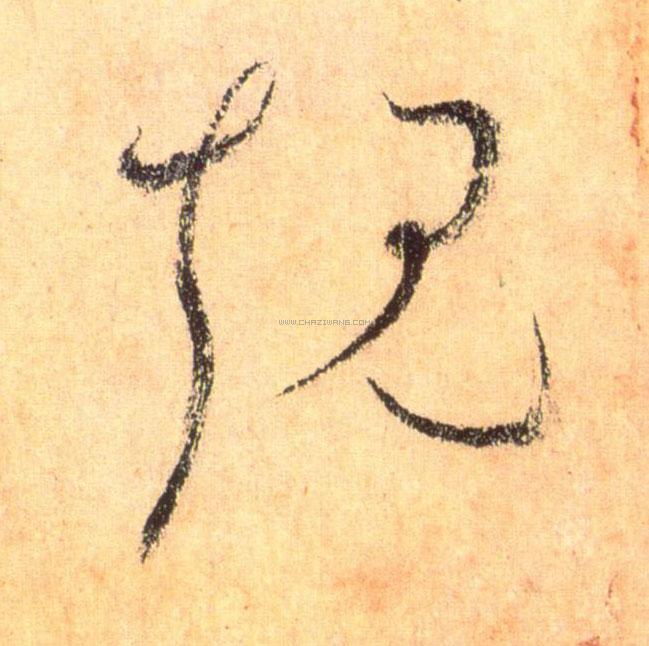 規
WWW.CHAZIWANG.COM